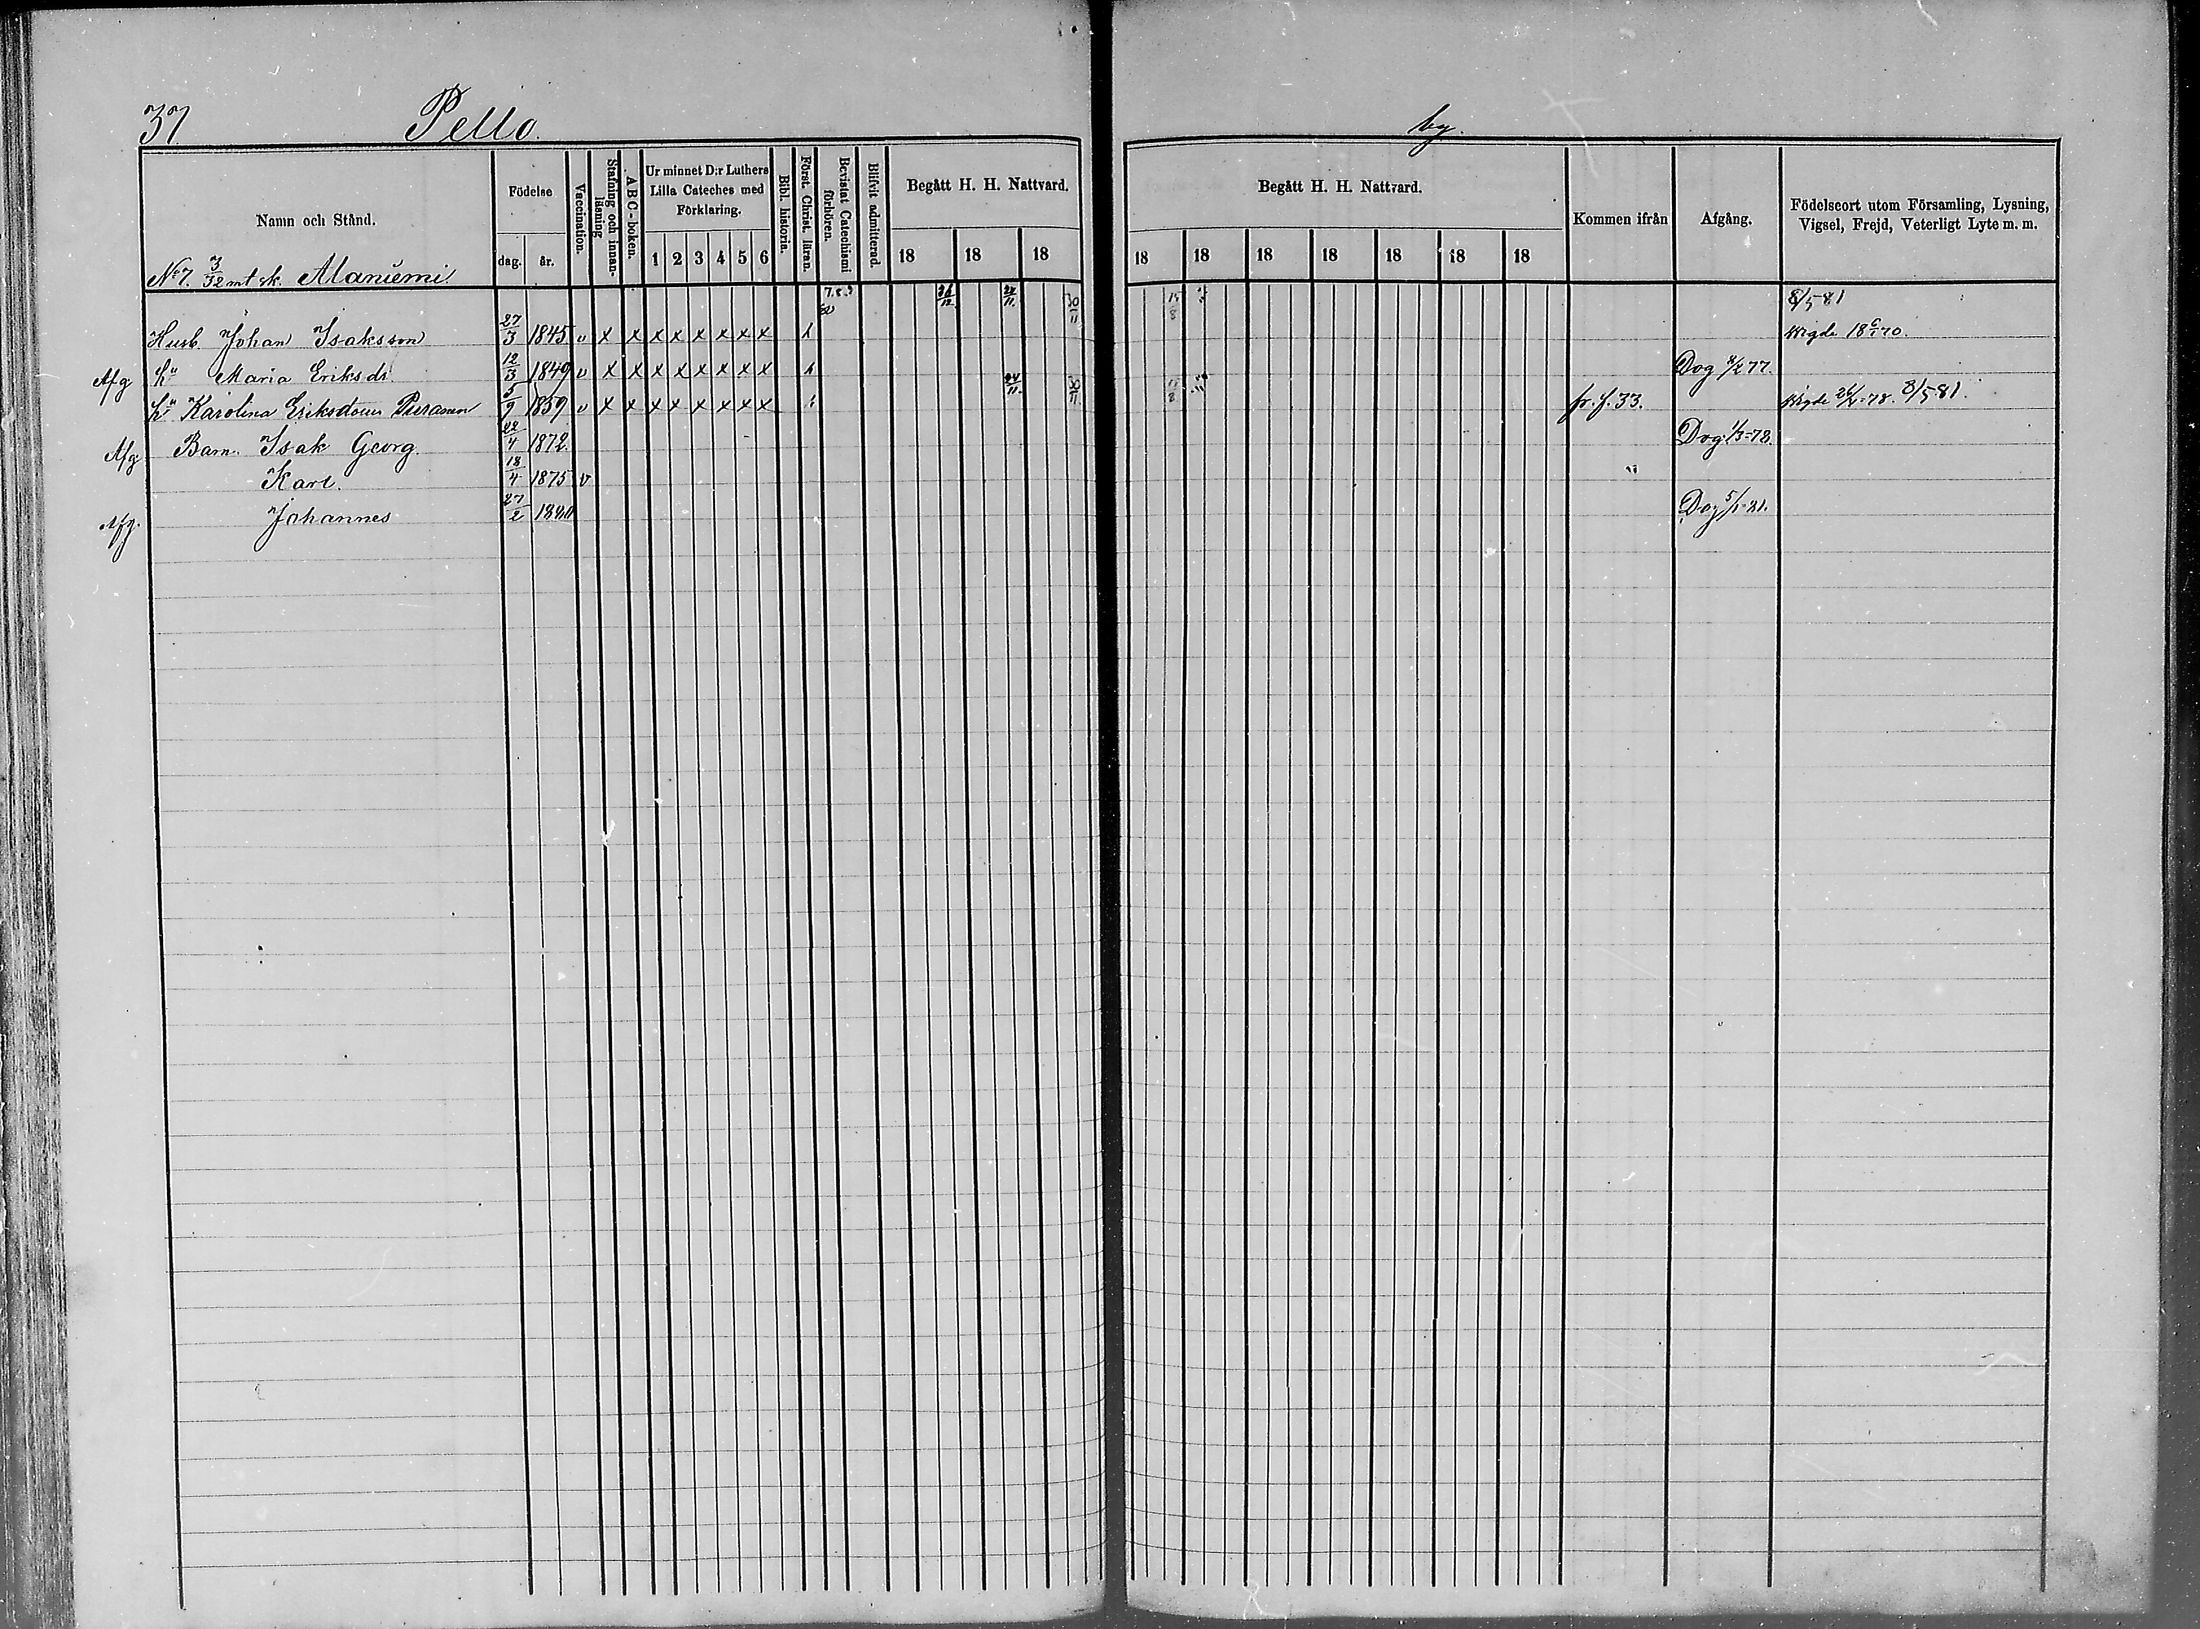 37 Pello. by.
Namn och Stånd. Födelse dag. år. Vaccination. Stafning och innanläsning A B C-boken. Ur minnet D:r Luthers Lilla Cateches med Förklaring. 1 2 3 4 5 6 Bibl. historia. Först. Christ. läran. Bevistat Catechismi förhören. Blifvit admitterad. Begått H. H. Nattvard. 18 18 18
Begått H. H. Nattvard. 18 18 18 18 18 18 18 Kommen ifrån Afgång. Födelseort utom Församling, Lysning, Vigsel, Frejd, Veterligt Lyte m. m.
No 7. 3/32 mt sk. Alaniemi.
30/11 15/8 8/5 81
Husb. Johan Isaksson 27/3 1845 v x x x x x x x x Wigde 18 70.
Afg hu Maria Eriksdr. 12/3 1849 v x x x x x x x x Dog 77.
hu Karolina Eriksdotter 5/9 1859 v x x x x x x x x 24/11 30/11 15/8 fr. f. 33. Wigde 78. 8/5 81.
Afg Barn. Isak Georg. 22/4 1872. Dog 1/3-78.
Karl. 18/4 1875 v
Afg. Johannes 27/2 1880 Dog 5/1-81.